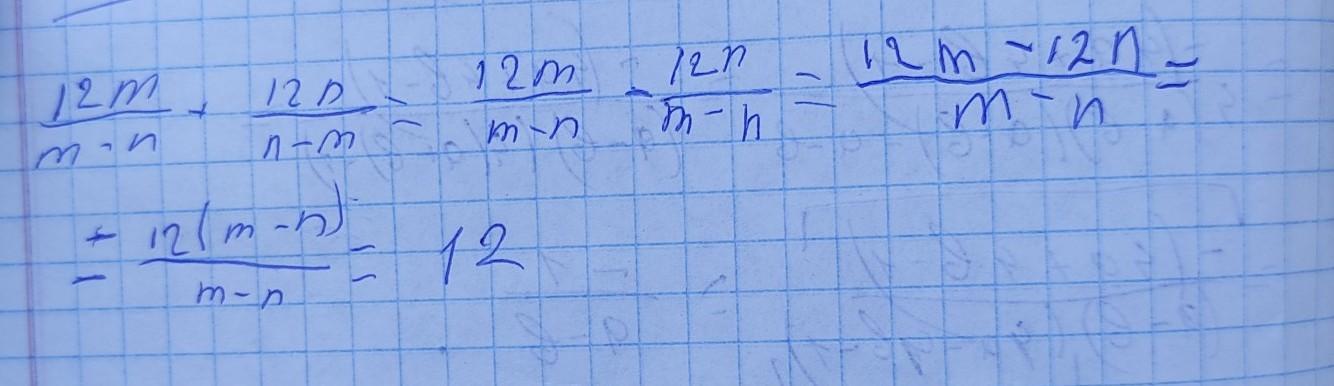 12m/(m-n) + 12n/(n-m) = 12m/(m-n) - 12n/(m-n) = (12m-12n)/(m-n) =
= 12(m-n)/(m-n) = 12